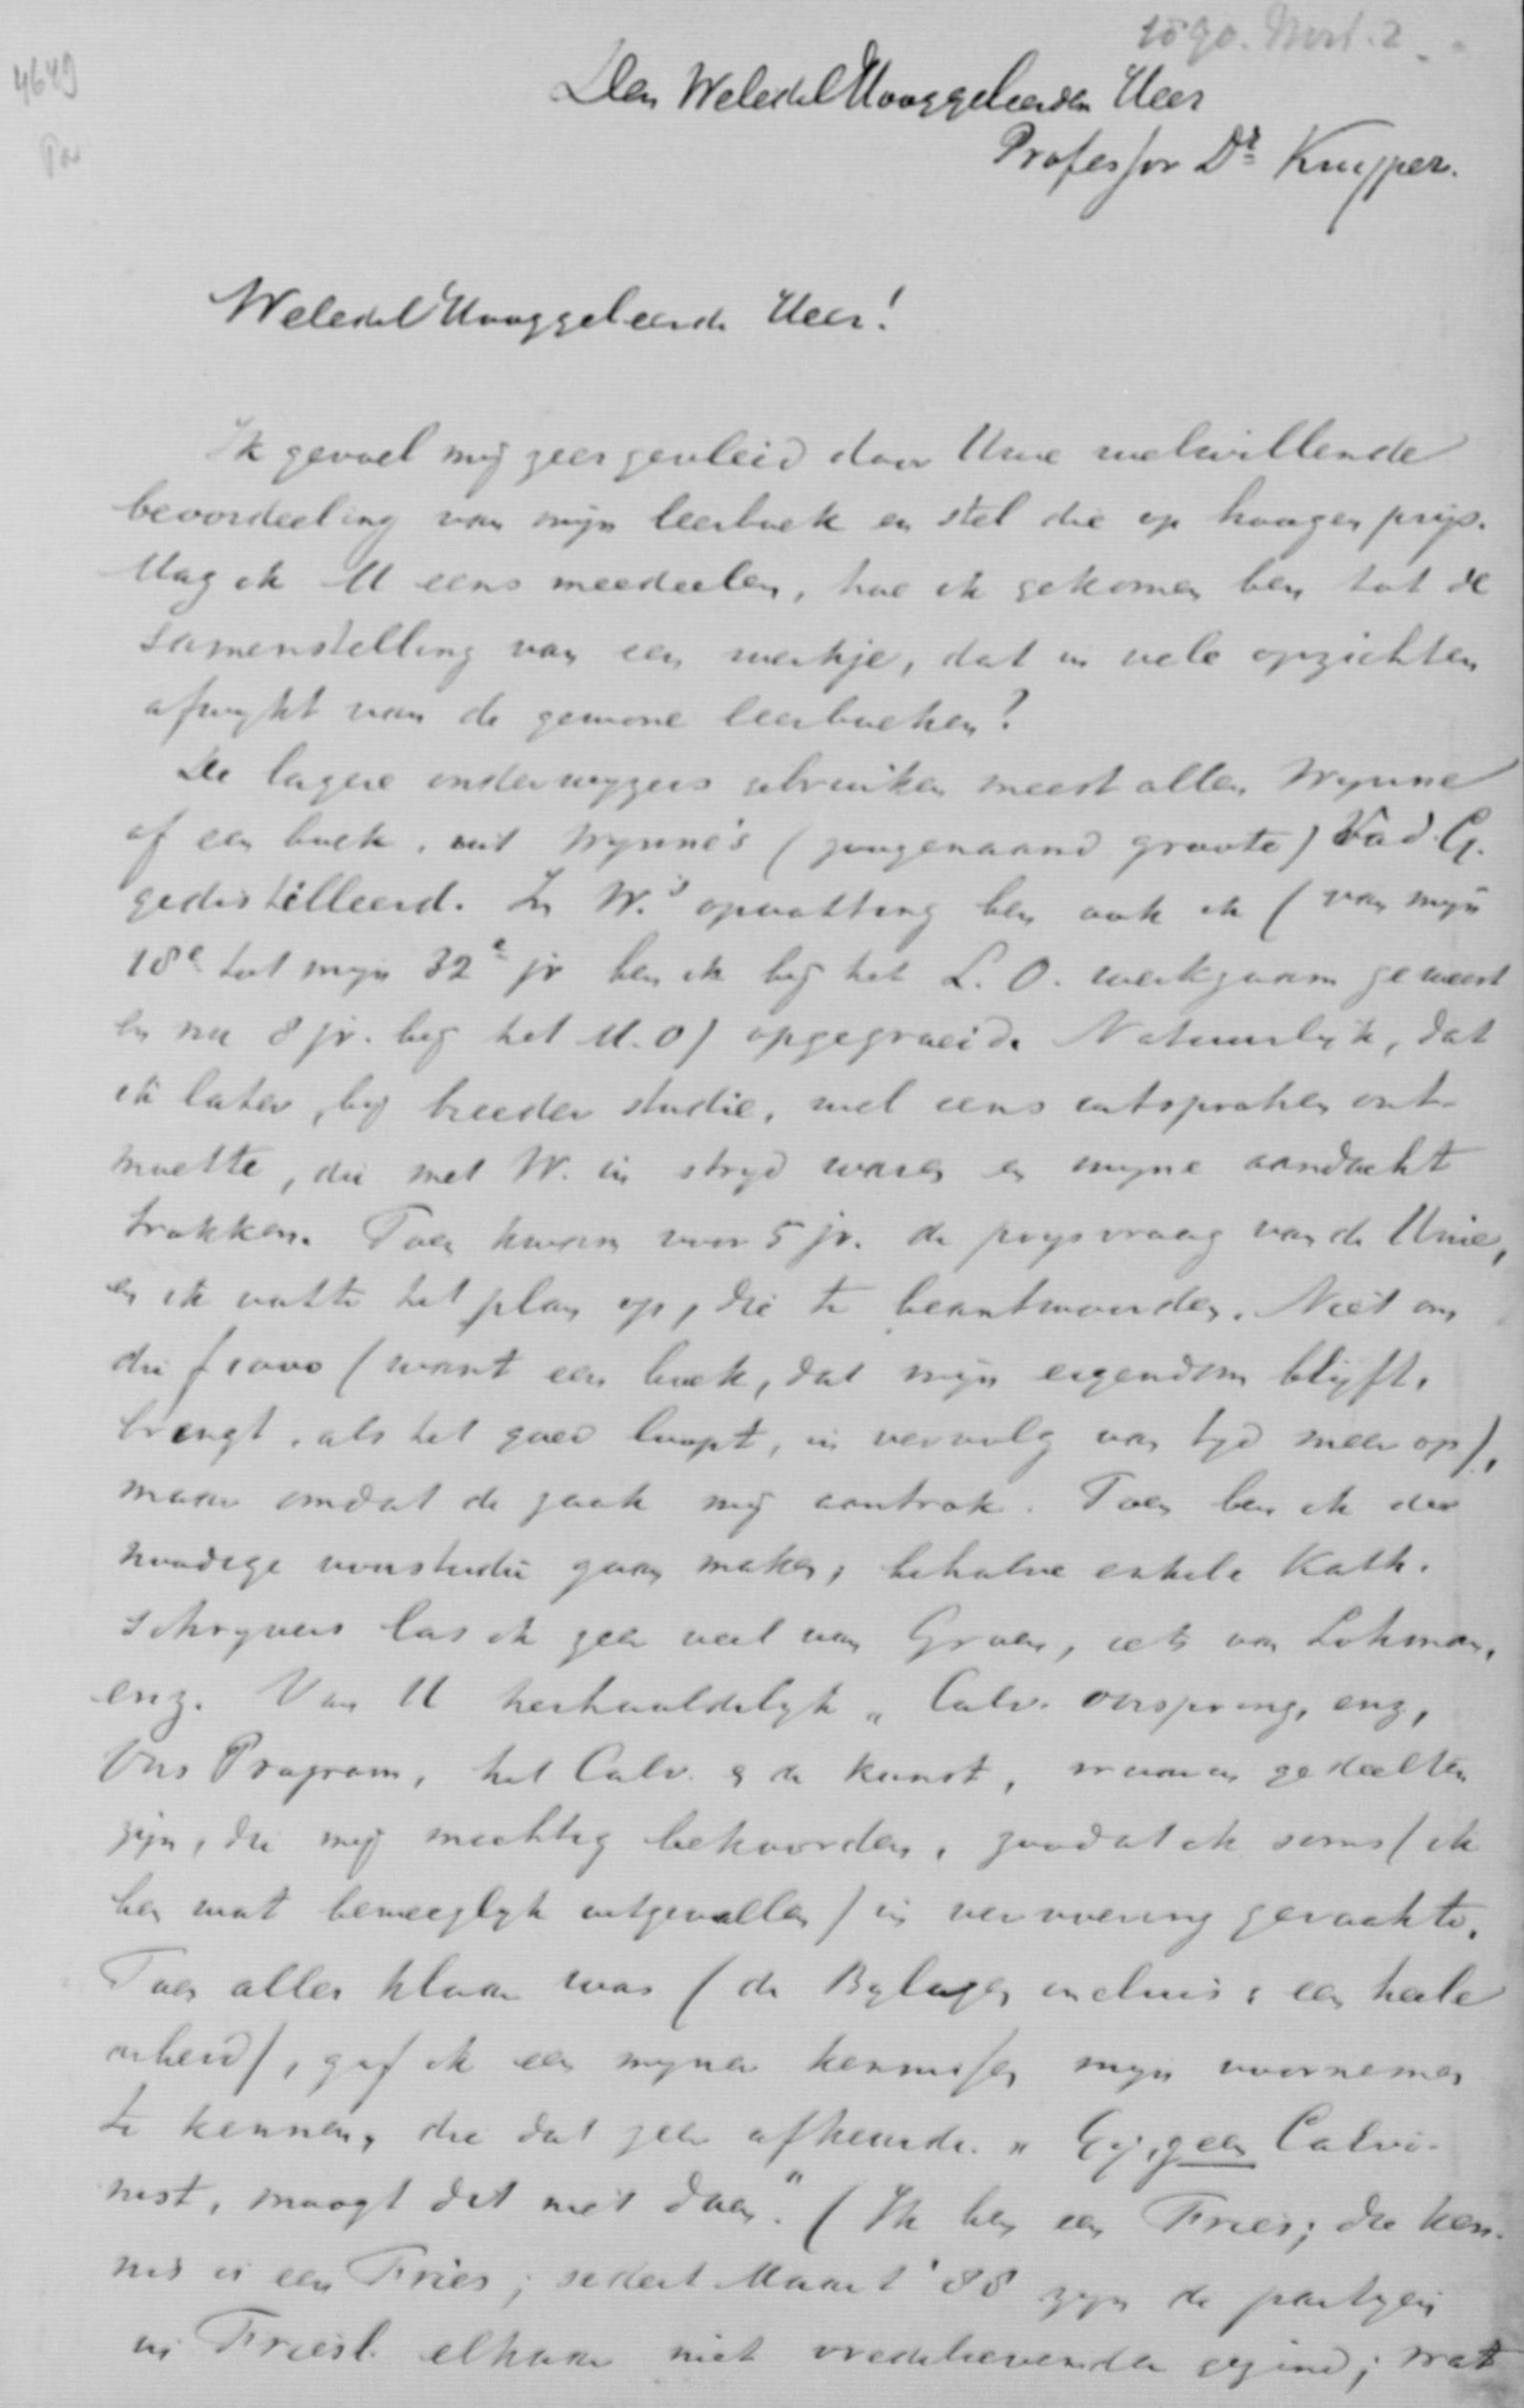 1890. Mrt. 2
4649
Den WelEdelHooggeleerden Heer
Professor Dr Kuyper.
WelEdelHooggeleerde Heer!
Ik gevoel mij zeer gevleid door Uwe welwillende
beoordeeling van mijn leerboek en stel die op hoogen prijs.
Mag ik U eens meedeelen, hoe ik gekomen ben tot de
samenstelling van een werkje, dat in vele opzichten
afwykt van de gewone leerboeken?
De lagere onderwyzers gebruiken meest allen Wynne
of een boek, uit Wynne's (zoogenaamd groote) Vad. G.
gedistilleerd. In W.'s opvatting ben ook ik (van mijn
18e tot mijn 32e jr ben ik bij het L. O. werkzaam geweest
en nu 8 jr. bij het M. O) opgegroeid. Natuurlyk, dat
ik later, bij breeder studie, wel eens uitspraken ont-
moette, die met W. in stryd waren en myne aandacht
trokken. Toen kwam voor 5 jr. de prysvraag van de Unie,
en ik vatte het plan op, die te beantwoorden. Niet om
die f 1000 (want een boek, dat mijn eigendom blijft,
brengt, als het goed loopt, in vervolg van tyd meer op),
maar omdat de zaak mij aantrok. Toen ben ik de
noodige voorstudie gaan maken; behalve enkele Kath.
schryvers las ik zeer veel van Groen, iets van Lohman,
enz. Van U herhaaldelyk „Calv. oorsprong, enz,
Ons Program, het Calv. & de kunst, waarin gedeelten
zijn, die mij machtig bekoorden, zoodat ik soms (ik
ben wat beweeglyk uitgevallen) in vervoering geraakte.
Toen alles klaar was (de Bylagen incluis; een heele
arbeid), gaf ik een myner kennissen mijn voornemen
te kennen, die dat zeer afkeurde. „Gij, geen Calvi-
nist, moogt dat niet doen." (Ik ben een Fries; die ken-
nis is een Fries; sedert Maart '88 zyn de partyen
in Friesl. elkaar niet vredelievender gezind; wat